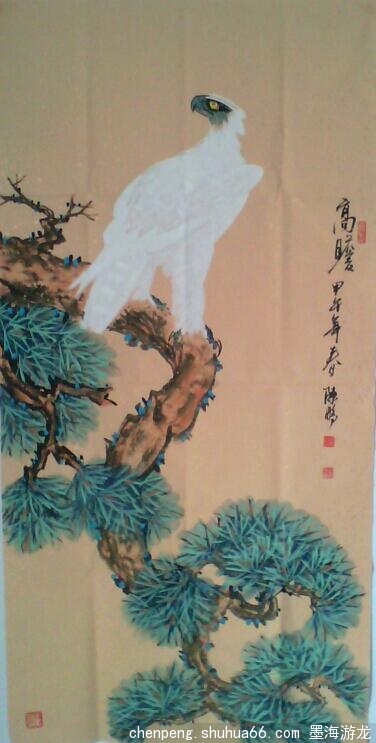 高瞻
甲午年春 陈鹏
chenpeng.shuhua66.com 墨海游龙